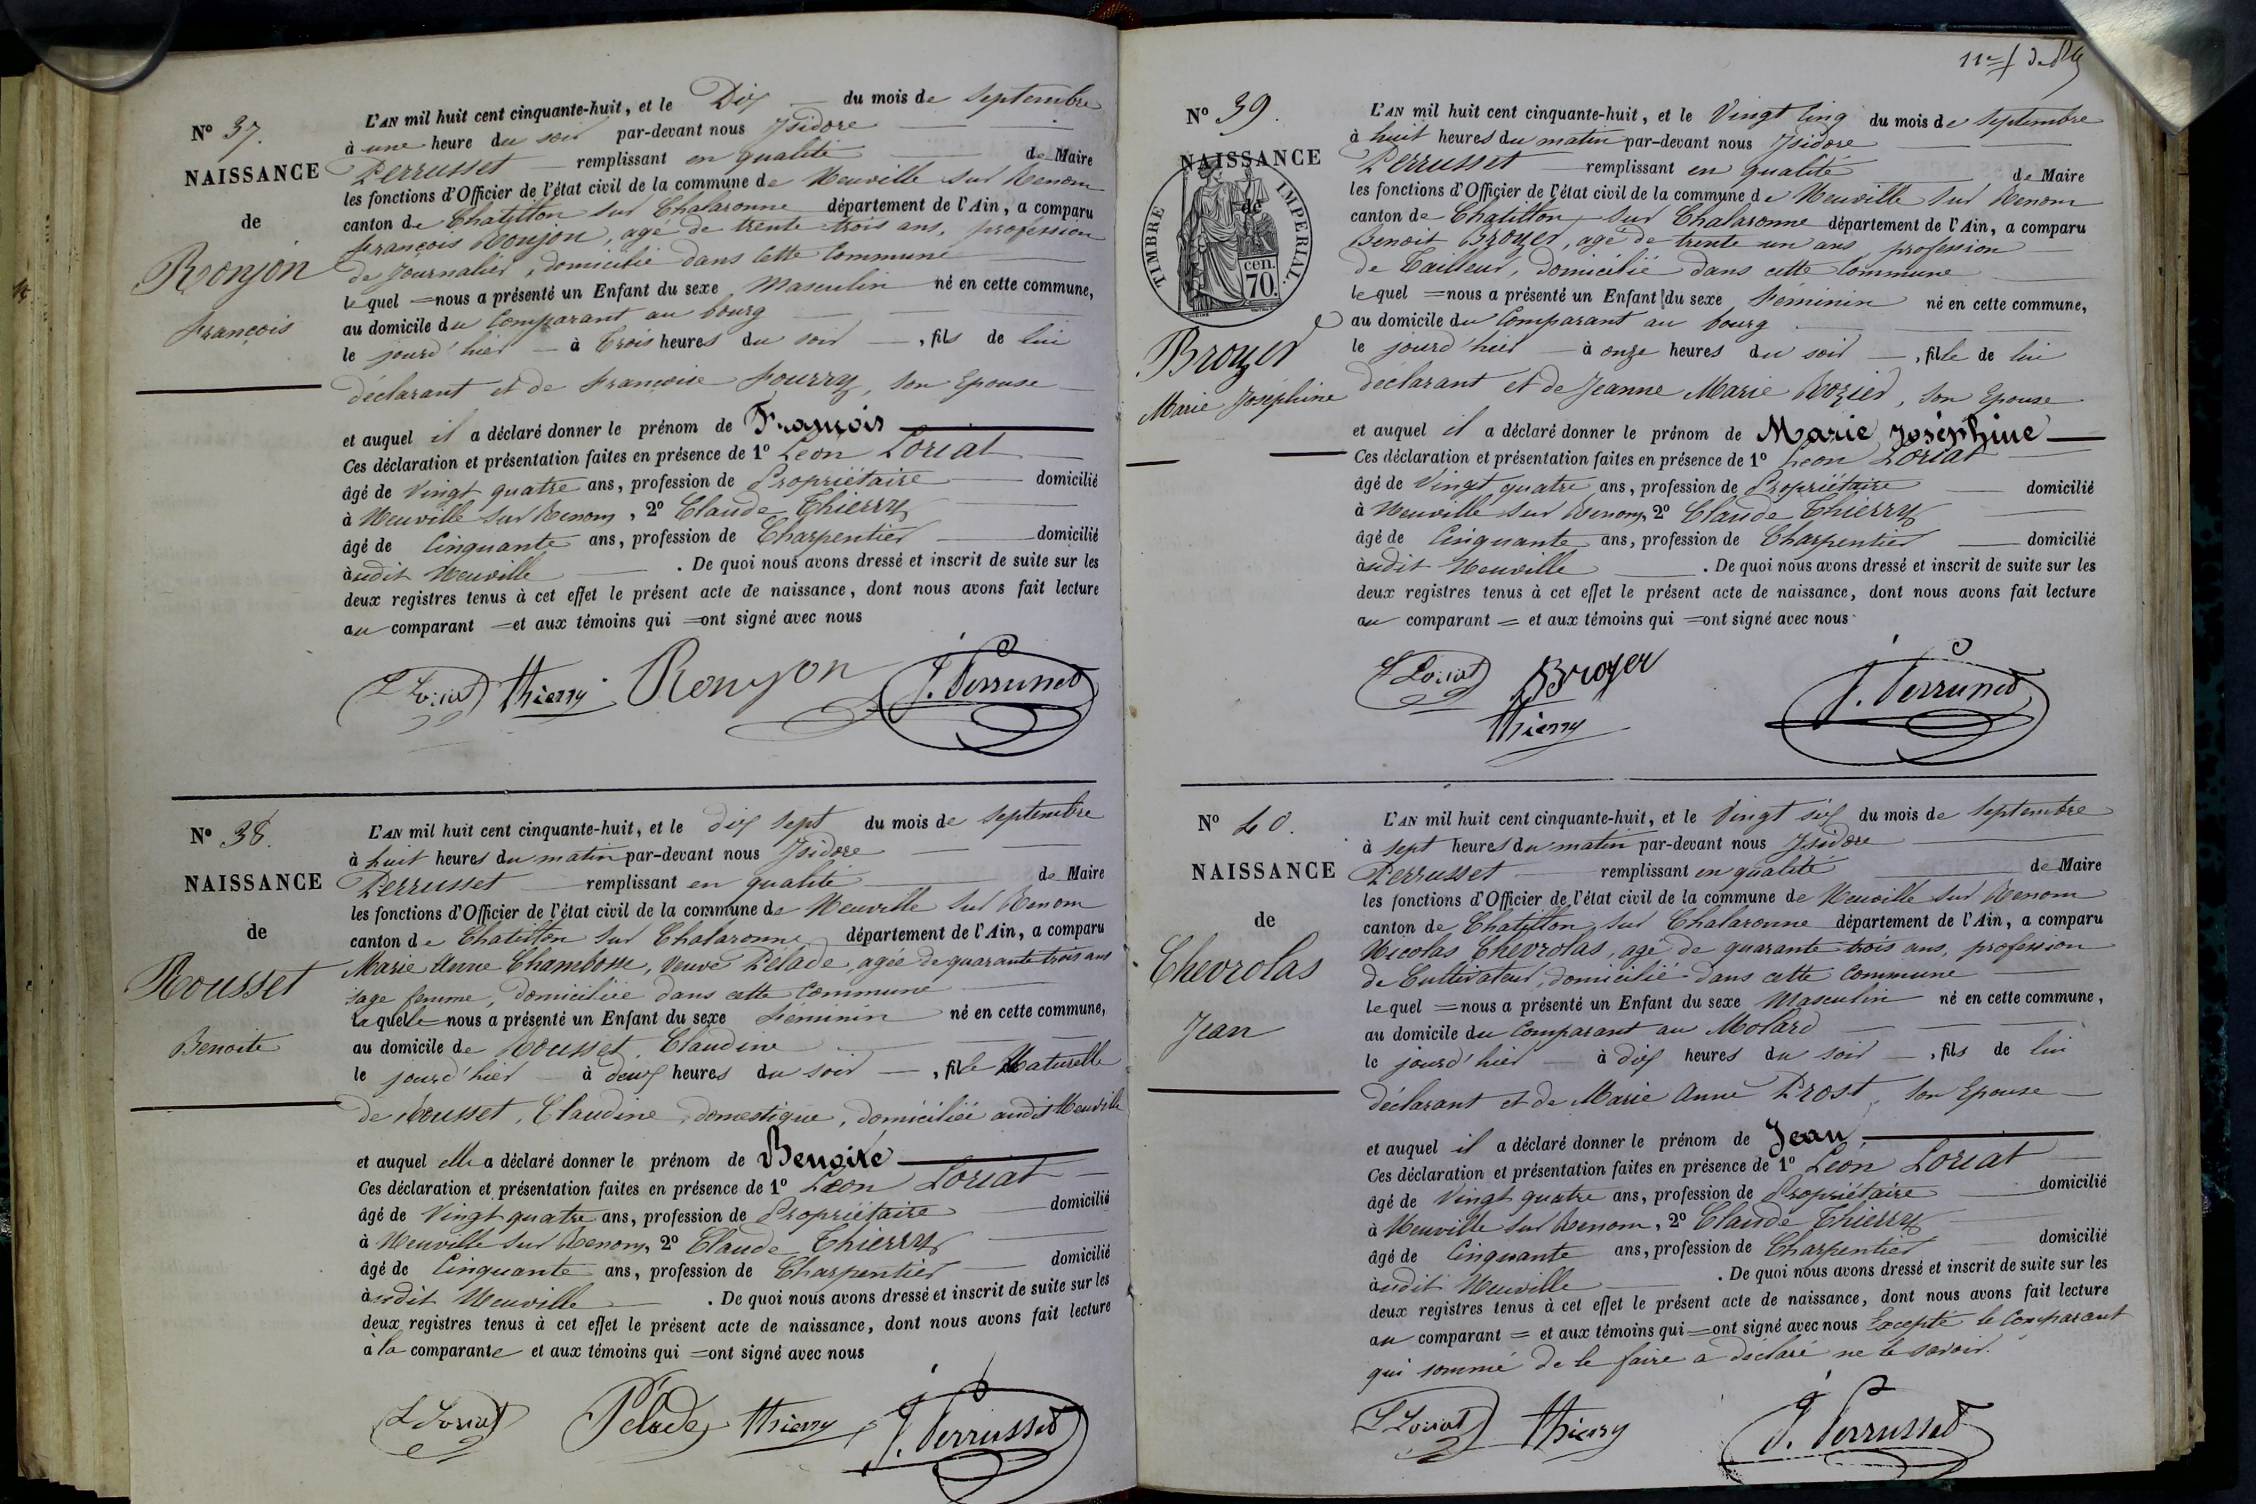 N° 37.
NAISSANCE
de
Ronjon
François
L'AN mil huit cent cinquante-huit, et le Dix du mois de Septembre
à une heure du soir par-devant nous Isidore
Perrusset remplissant en qualité de Maire
les fonctions d'Officier de l'état civil de la commune de Neuville sur Renom
canton de Chatillon sur Chalaronne département de l'Ain, a comparu
François Ronjon, agé de trente trois ans, profession
de Journalier, domicilié dans cette Commune
lequel = nous a présenté un Enfant du sexe Masculin né en cette commune,
au domicile du Comparant au bourg
le jourd'hier à trois heures du soir, fils de lui
déclarant et de Françoise Fourry, son Epouse
et auquel il a déclaré donner le prénom de François
Ces déclaration et présentation faites en présence de 1° Léon Loriat
âgé de Vingt quatre ans, profession de Propriétaire domicilié
à Neuville sur Renom, 2° Claude Thierry
âgé de Cinquante ans, profession de Charpentier domicilié
audit Neuville. De quoi nous avons dressé et inscrit de suite sur les
deux registres tenus à cet effet le présent acte de naissance, dont nous avons fait lecture
au comparant = et aux témoins qui = ont signé avec nous
L Loriat Thierry Ronjon J. Perrusset
N° 38.
NAISSANCE
de
Rousset
Benoite
L'AN mil huit cent cinquante-huit, et le dix sept du mois de Septembre
à huit heures du matin par-devant nous Isidore
Perrusset remplissant en qualité de Maire
les fonctions d'Officier de l'état civil de la commune de Neuville sur Renom
canton de Chatillon sur Chalaronne département de l'Ain, a comparu
Marie Anne Chambosse, Veuve Pelade, agée de quarante trois ans
sage femme, domiciliée dans cette Commune
laquelle nous a présenté un Enfant du sexe Féminin né en cette commune,
au domicile de Rousset, Claudine
le jourd'hier à deux heures du soir, fille Naturelle
de Rousset, Claudine, domestique, domiciliée audit Neuville
et auquel elle a déclaré donner le prénom de Benoite
Ces déclaration et présentation faites en présence de 1° Léon Loriat
âgé de Vingt quatre ans, profession de Propriétaire domicilié
à Neuville sur Renom, 2° Claude Thierry
âgé de Cinquante ans, profession de Charpentier domicilié
audit Neuville. De quoi nous avons dressé et inscrit de suite sur les
deux registres tenus à cet effet le présent acte de naissance, dont nous avons fait lecture
à la comparante et aux témoins qui = ont signé avec nous
L Loriat Pélade Thierry J. Perrusset
N° 39.
NAISSANCE
de
TIMBRE IMPERIAL
70 cen.
Broyer
Marie Joséphine
L'AN mil huit cent cinquante-huit, et le Vingt Cinq du mois de Septembre
à huit heures du matin par-devant nous Isidore
Perrusset remplissant en qualité de Maire
les fonctions d'Officier de l'état civil de la commune de Neuville sur Renom
canton de Chatillon sur Chalaronne département de l'Ain, a comparu
Benoit Broyer, agé de trente un ans, profession
de Tailleur, domicilié dans cette Commune
lequel = nous a présenté un Enfant du sexe Féminin né en cette commune,
au domicile du Comparant au bourg
le jourd'hier à onze heures du soir, fille de lui
déclarant et de Jeanne Marie Rozier, son Epouse
et auquel il a déclaré donner le prénom de Marie Joséphine
Ces déclaration et présentation faites en présence de 1° Léon Loriat
âgé de Vingt quatre ans, profession de Propriétaire domicilié
à Neuville sur Renom, 2° Claude Thierry
âgé de Cinquante ans, profession de Charpentier domicilié
audit Neuville. De quoi nous avons dressé et inscrit de suite sur les
deux registres tenus à cet effet le présent acte de naissance, dont nous avons fait lecture
au comparant = et aux témoins qui = ont signé avec nous
L Loriat Broyer J. Perrusset
Thierry
N° 40.
NAISSANCE
de
Chevrolas
Jean
L'AN mil huit cent cinquante-huit, et le Vingt six du mois de Septembre
à sept heures du matin par-devant nous Isidore
Perrusset remplissant en qualité de Maire
les fonctions d'Officier de l'état civil de la commune de Neuville sur Renom
canton de Chatillon sur Chalaronne département de l'Ain, a comparu
Nicolas Chevrolas, agé de quarante trois ans, profession
de Cultivateur, domicilié dans cette Commune
lequel = nous a présenté un Enfant du sexe Masculin né en cette commune,
au domicile du Comparant au Molard
le jourd'hier à dix heures du soir, fils de lui
déclarant et de Marie Anne Prost, son Epouse
et auquel il a déclaré donner le prénom de Jean
Ces déclaration et présentation faites en présence de 1° Léon Loriat
âgé de Vingt quatre ans, profession de Propriétaire domicilié
à Neuville sur Renom, 2° Claude Thierry
âgé de Cinquante ans, profession de Charpentier domicilié
audit Neuville. De quoi nous avons dressé et inscrit de suite sur les
deux registres tenus à cet effet le présent acte de naissance, dont nous avons fait lecture
au comparant = et aux témoins qui = ont signé avec nous Excepté le Comparant
qui sommé de le faire a déclaré ne le savoir.
L Loriat Thierry J. Perrusset